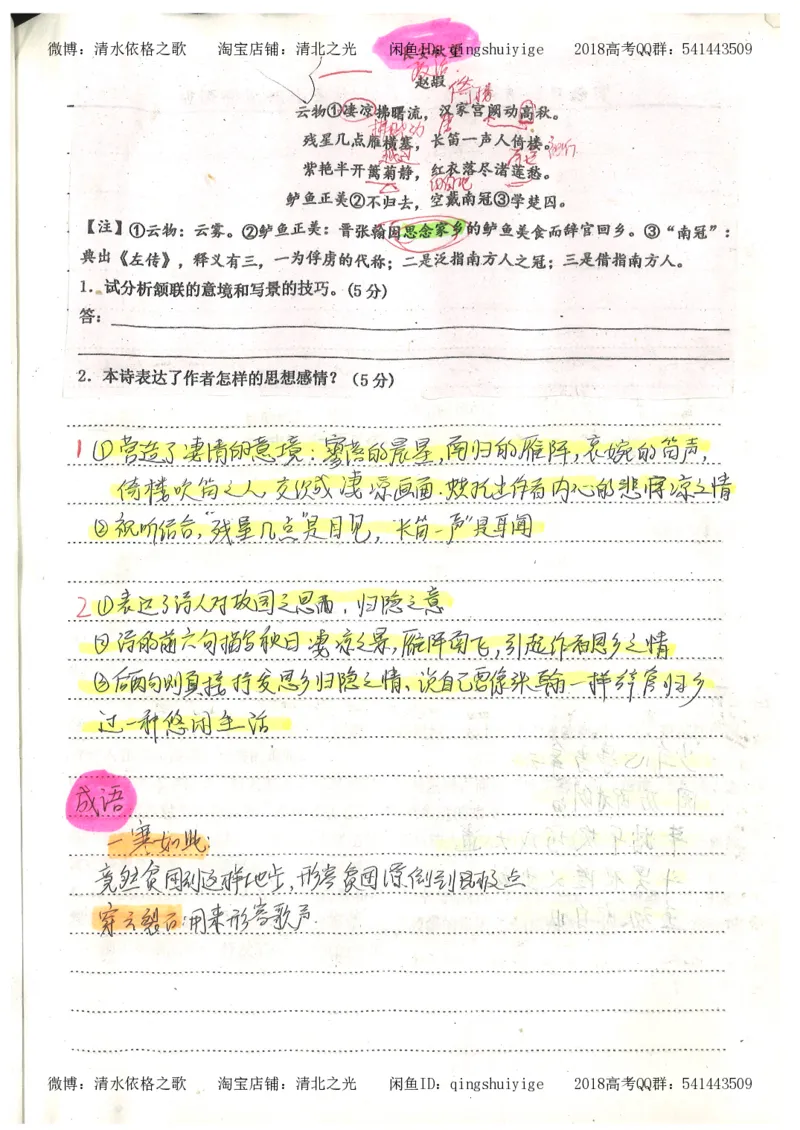 微博：清水依格之歌 淘宝店铺：清北之光 闲鱼ID：qingshuiyige 2018高考QQ群：541443509
赵嘏
云物①凄凉拂曙流，汉家宫阙动高秋。
残星几点雁横塞，长笛一声人倚楼。
紫艳半开篱菊静，红衣落尽渚莲愁。
鲈鱼正美②不归去，空戴南冠③学楚囚。
【注】①云物：云雾。②鲈鱼正美：晋张翰因思念家乡的鲈鱼美食而辞官回乡。③“南冠”：
典出《左传》，释义有三，一为俘虏的代称；二是泛指南方人之冠；三是借指南方人。
1．试分析颔联的意境和写景的技巧。(5分)
答：
2．本诗表达了作者怎样的思想感情？（5分）
1 ①营造了凄清的意境：寥落的晨星，南归的雁阵，哀婉的笛声，
倚楼吹笛之人交织成凄凉画面．烘托出作者内心的悲凉之情
②视听结合，“残星几点”是目见，“长笛一声”是耳闻
2 ①表达了诗人对故园之思，归隐之意
②诗的前六句描写秋日凄凉之景，雁阵南飞，引起作者思乡之情
③后两句则直接抒发思乡归隐之情、说自己要像张翰一样辞官归乡
过一种悠闲生活
成语
一寒如此：
竟然贫困到这样地步，形容贫困潦倒到极点
穿云裂石：用来形容歌声．
微博：清水依格之歌 淘宝店铺：清北之光 闲鱼ID：qingshuiyige 2018高考QQ群：541443509